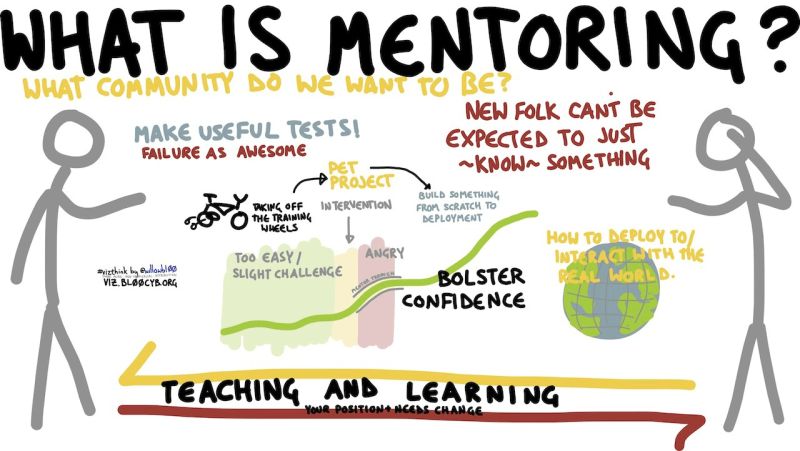 WHAT IS MENTORING?
WHAT COMMUNITY DO WE WANT TO BE?
MAKE USEFUL TESTS!
FAILURE AS AWESOME
NEW FOLK CAN'T BE
EXPECTED TO JUST
~KNOW~ SOMETHING
PET
PROJECT
TAKING OFF
THE TRAINING
WHEELS
INTERVENTION
BUILD SOMETHING
FROM SCRATCH TO
DEPLOYMENT
TOO EASY/
SLIGHT CHALLENGE
ANGRY
MENTOR THROUGH
BOLSTER
CONFIDENCE
HOW TO DEPLOY TO/
INTERACT WITH THE
REAL WORLD.
#vizthink by @willowbl00
VIZ.BL00CYB.ORG
TEACHING AND LEARNING
YOUR POSITION + NEEDS CHANGE